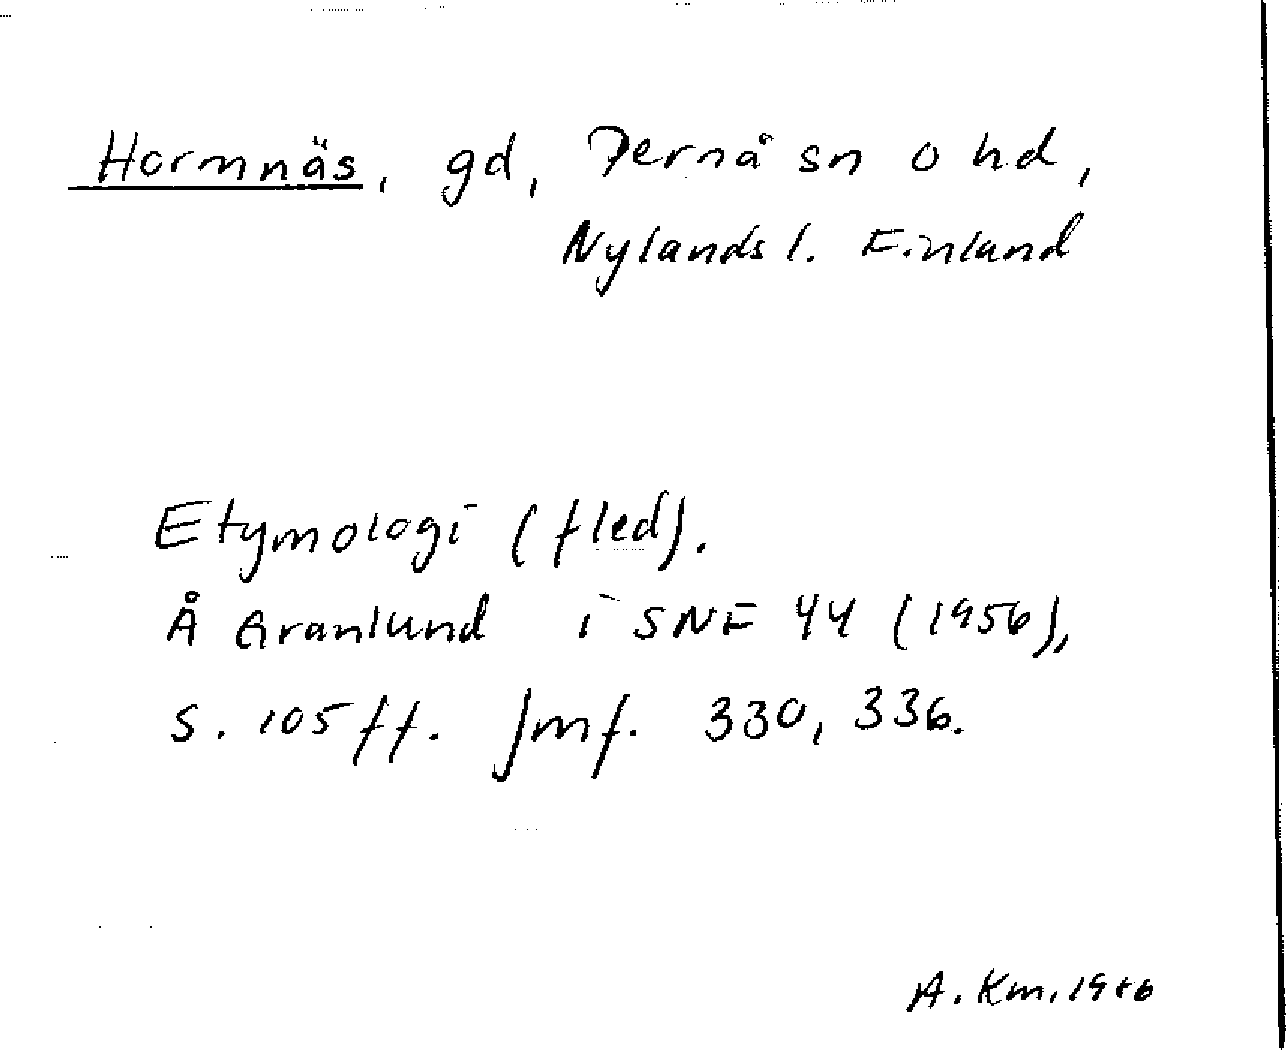 Hormnäs, gd, Pernå sn o hd,
Nylands l. Finland
Etymologi (fled).
Å Granlund i SNF 44 (1956),
s. 105 ff. Jmf. 330, 336.
A. Km.